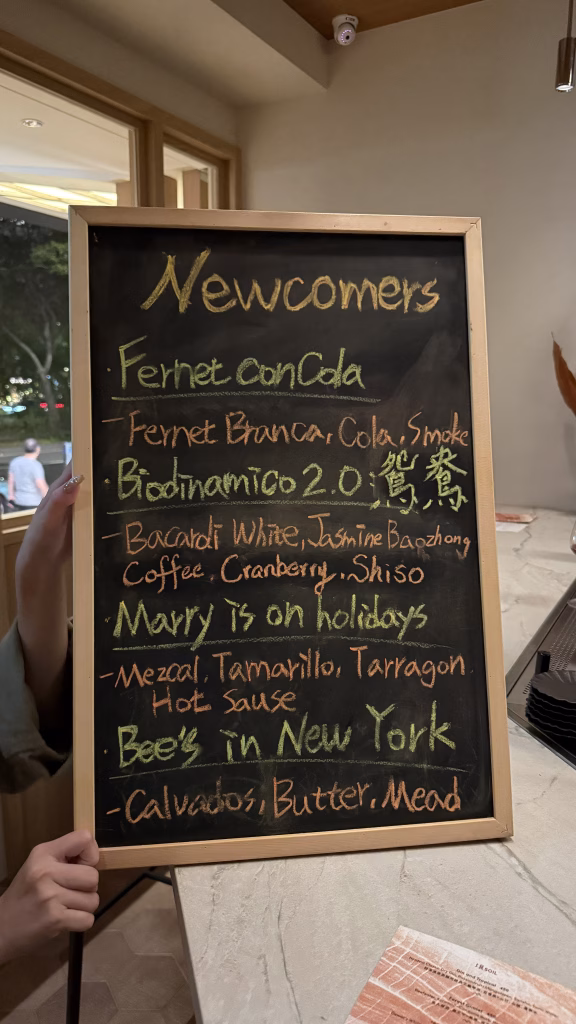 Newcomers
· Fernet conCola
- Fernet Branca, Cola, Smoke
· Biodinamico 2.0:鴛鴦
- Bacardi White, Jasmine Baozhong
Coffee, Cranberry, Shiso
· Marry is on holidays
- Mezcal, Tamarillo, Tarragon
Hot sause
· Bee's in New York
- Calvados, Butter, Mead